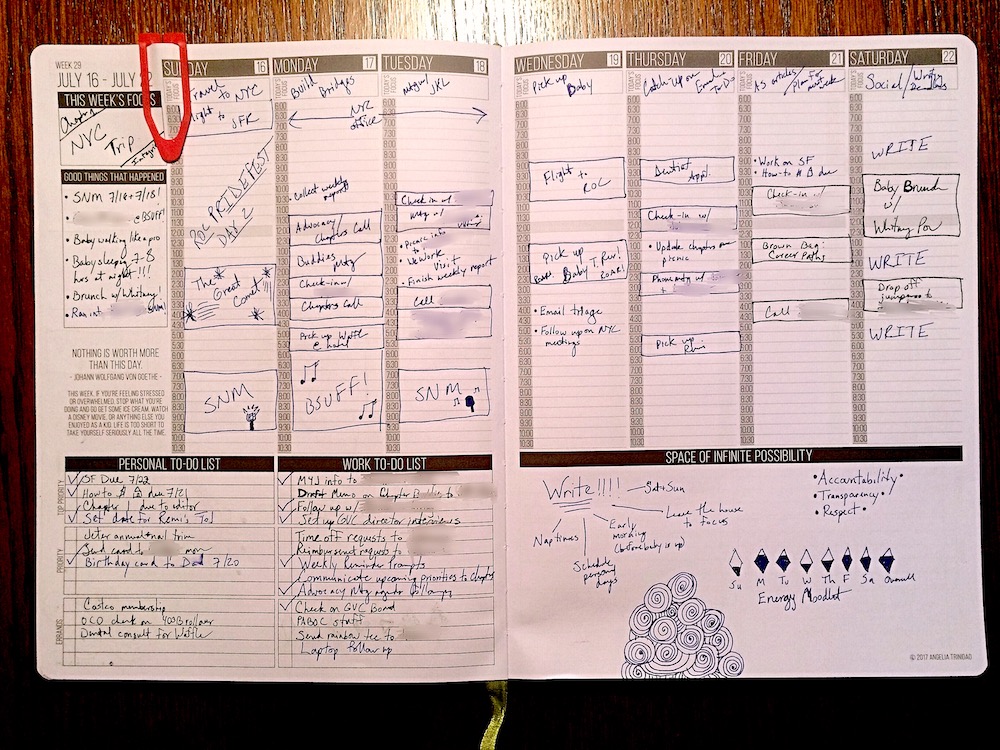 WEEK 29
JULY 16 - JULY
THIS WEEK'S FOCUS
Chapter 1
NYC
Trip
GOOD THINGS THAT HAPPENED
• SNM 7/16+7/18!
@BSUFF!
• Baby walking like a pro
• Baby sleeping 7-8
hrs at night!!!
• Brunch w/ Whitney!
• Ran into
NOTHING IS WORTH MORE
THAN THIS DAY.
- JOHANN WOLFGANG VON GOETHE -
THIS WEEK, IF YOU'RE FEELING STRESSED
OR OVERWHELMED, STOP WHAT YOU'RE
DOING AND GO GET SOME ICE CREAM, WATCH
A DISNEY MOVIE, OR ANYTHING ELSE YOU
ENJOYED AS A KID. LIFE IS TOO SHORT TO
TAKE YOURSELF SERIOUSLY ALL THE TIME.
SUNDAY 16
Travel
to NYC
Flight to
JFK
ROC PRIDEFEST
DAY 2
The
Great
Comet!!!
SNM
MONDAY 17
TODAY'S FOCUS
Build
Bridges
NYC
office
• Collect weekly
reports
Advocacy/
Chapters Call
Buddies Mtg
Check-in w/
Chapters Call
Pick up Waffle
@ hotel
BSUFF!
TUESDAY 18
TODAY'S FOCUS
Mtg w/
JKL
Check in w/
Mtg w/
• Picnic info
to
• WeWork
Visit
• Finish weekly report
Call
SNM
WEDNESDAY 19
TODAY'S FOCUS
Pick up
Baby
Flight to
ROC
Pick up
Baby T. Rex!
ROAR!
• Email triage
• Follow up on NYC
meetings
THURSDAY 20
TODAY'S FOCUS
Catch-up on
Email +
To Do
Dentist
Appt.
Check-in w/
• Update chapters on
picnic
Phone mtg w/
+
Pick up
Remi
FRIDAY 21
TODAY'S FOCUS
AS articles/
Plan for
next week
• Work on SF
• How-to A B due
Check-in w/
Brown Bag:
Career Paths
Call
SATURDAY 22
TODAY'S FOCUS
Social/Write
Deadlines
WRITE
Baby Brunch
w/
Whitney Pow
WRITE
Drop off
jumperoo to
WRITE
PERSONAL TO-DO LIST
TOP PRIORITY
✓ SF Due 7/22
✓ How to due 7/21
✓ Chapter 1 due to editor
✓ Set date for Remi's
PRIORITY
Jeter annual + nail trim
✓ Send card to mom
✓ Birthday card to Dad 7/20
ERRANDS
Costco membership
Dental consult for Waffle
WORK TO-DO LIST
✓ MYJ info to
Draft Memo on Chapter Buddies to
✓ Follow up w/
✓ Set up GVC director interviews
Time off requests to
Reimbursement requests to
✓ Weekly Reminder Prompts
Communicate upcoming priorities to Chapters
✓ Advocacy Mtg agenda
✓ Check on GVC Board
PABOC staff
Send rainbow tee to
Laptop follow up
SPACE OF INFINITE POSSIBILITY
Write!!!! — Sat + Sun
Leave the house
to focus
Early
morning
(before baby is up)
Naptimes
Schedule
personal
days
• Accountability •
• Transparency •
• Respect •
Su M Tu W Th F Sa Overall
Energy Modlet
© 2017 ANGELIA TRINIDAD